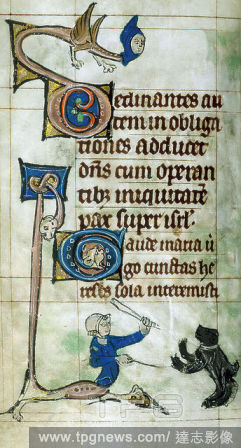 Declinantes au
tem in obliga
tiones adducet
dñs cum operan
tibȝ iniquitatē
pax super isrl.
Gaude maria ũ
go cunctas he
reses sola interemisti
TPG
www.tpgnews.com/ 達志影像